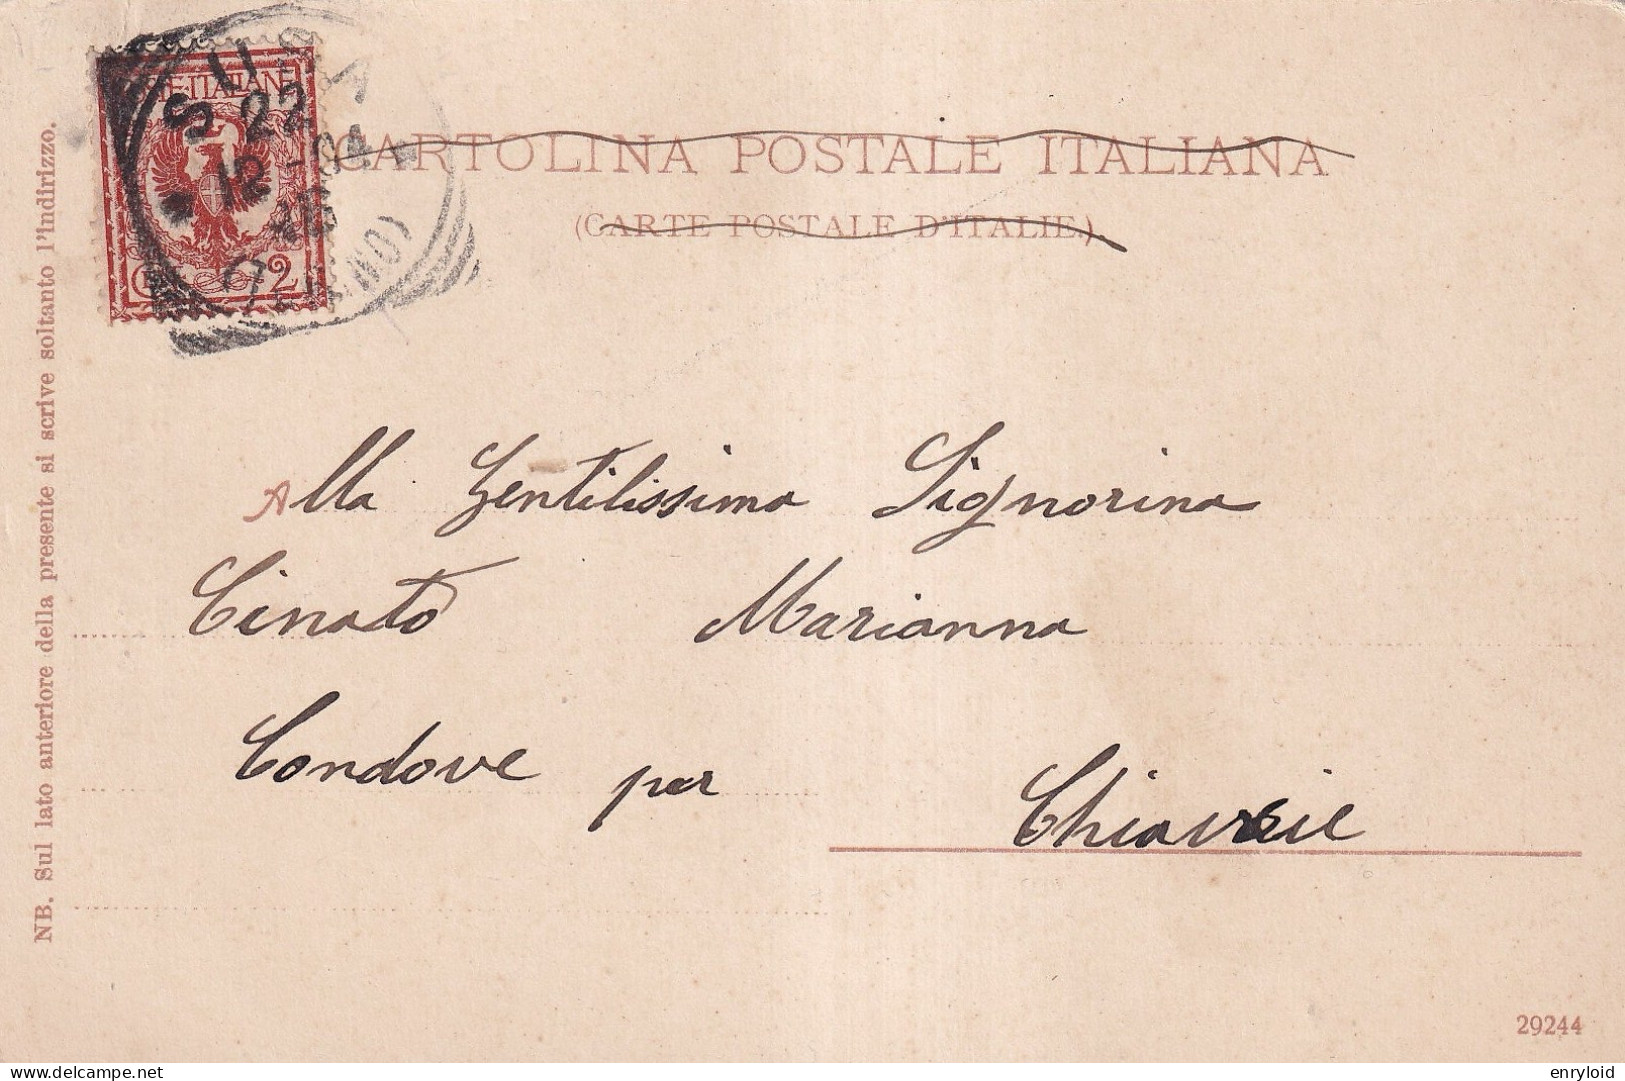 POSTE·ITALIANE
C. 2
SUSA
22
12-04
(TORINO)
CARTOLINA POSTALE ITALIANA
(CARTE POSTALE D'ITALIE.)
NB. Sul lato anteriore della presente si scrive soltanto l'indirizzo.
Alla Gentilissima Signorina
Cinato Marianna
Condove per
29244
delcampe.net
enryloid